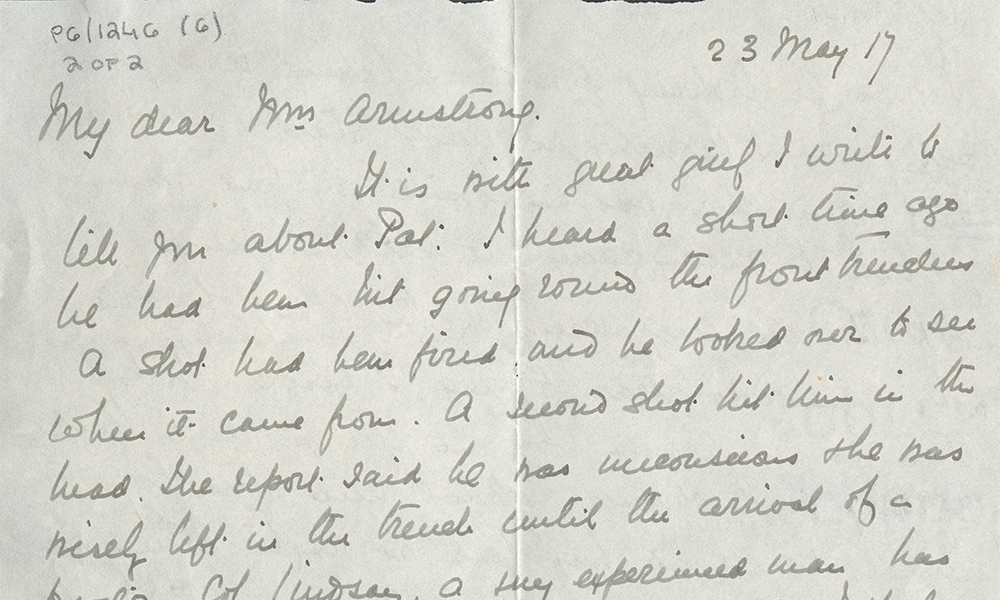 P6/1246 (6)
2 OF 2
23 May 17
My dear Mrs Armstrong.
It is with great grief I write to
tell you about Pat. I heard a short time ago
he had been hit going round the front trenches
A shot had been fired and he looked over to see
where it came from. A second shot hit him in the
head. The report said he was unconscious & he was
wisely left in the trench until the arrival of a
Col Lindsay, a very experienced man has